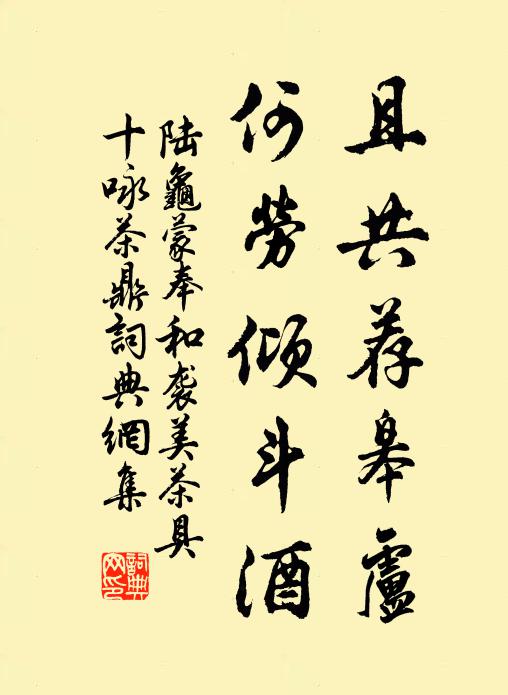 且共荐皋廬
何勞傾斗酒
陆龜蒙奉和袭美茶具
十咏茶鼎詞典網集
詞典
网印